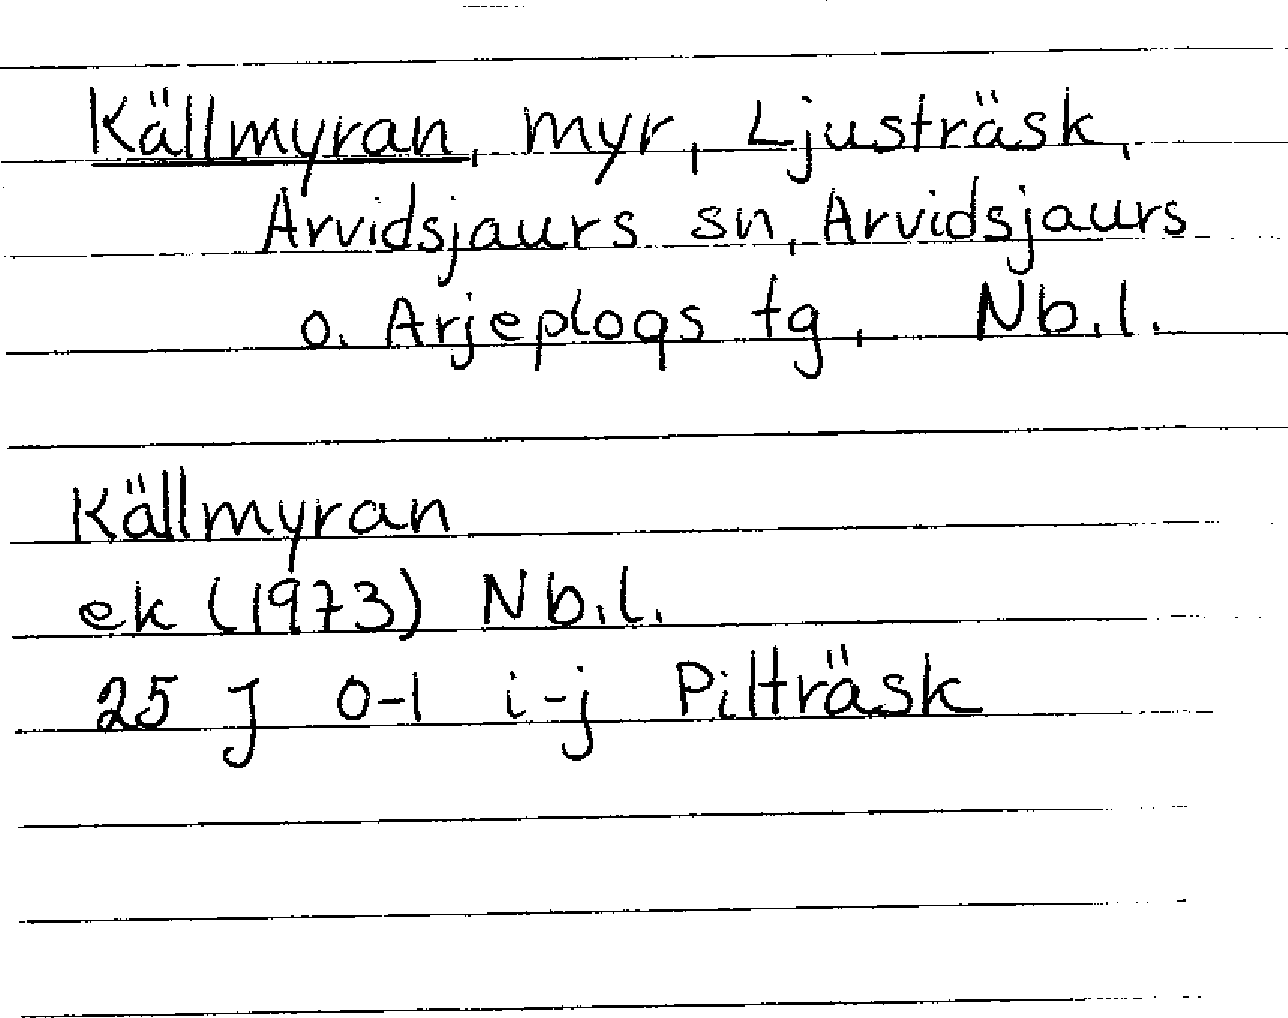 Källmyran, myr, Ljusträsk,
Arvidsjaurs sn, Arvidsjaurs
o. Arjeplogs tg, Nb.l.
Källmyran
ek (1973) Nb.l.
25 J 0-1 i-j Pilträsk